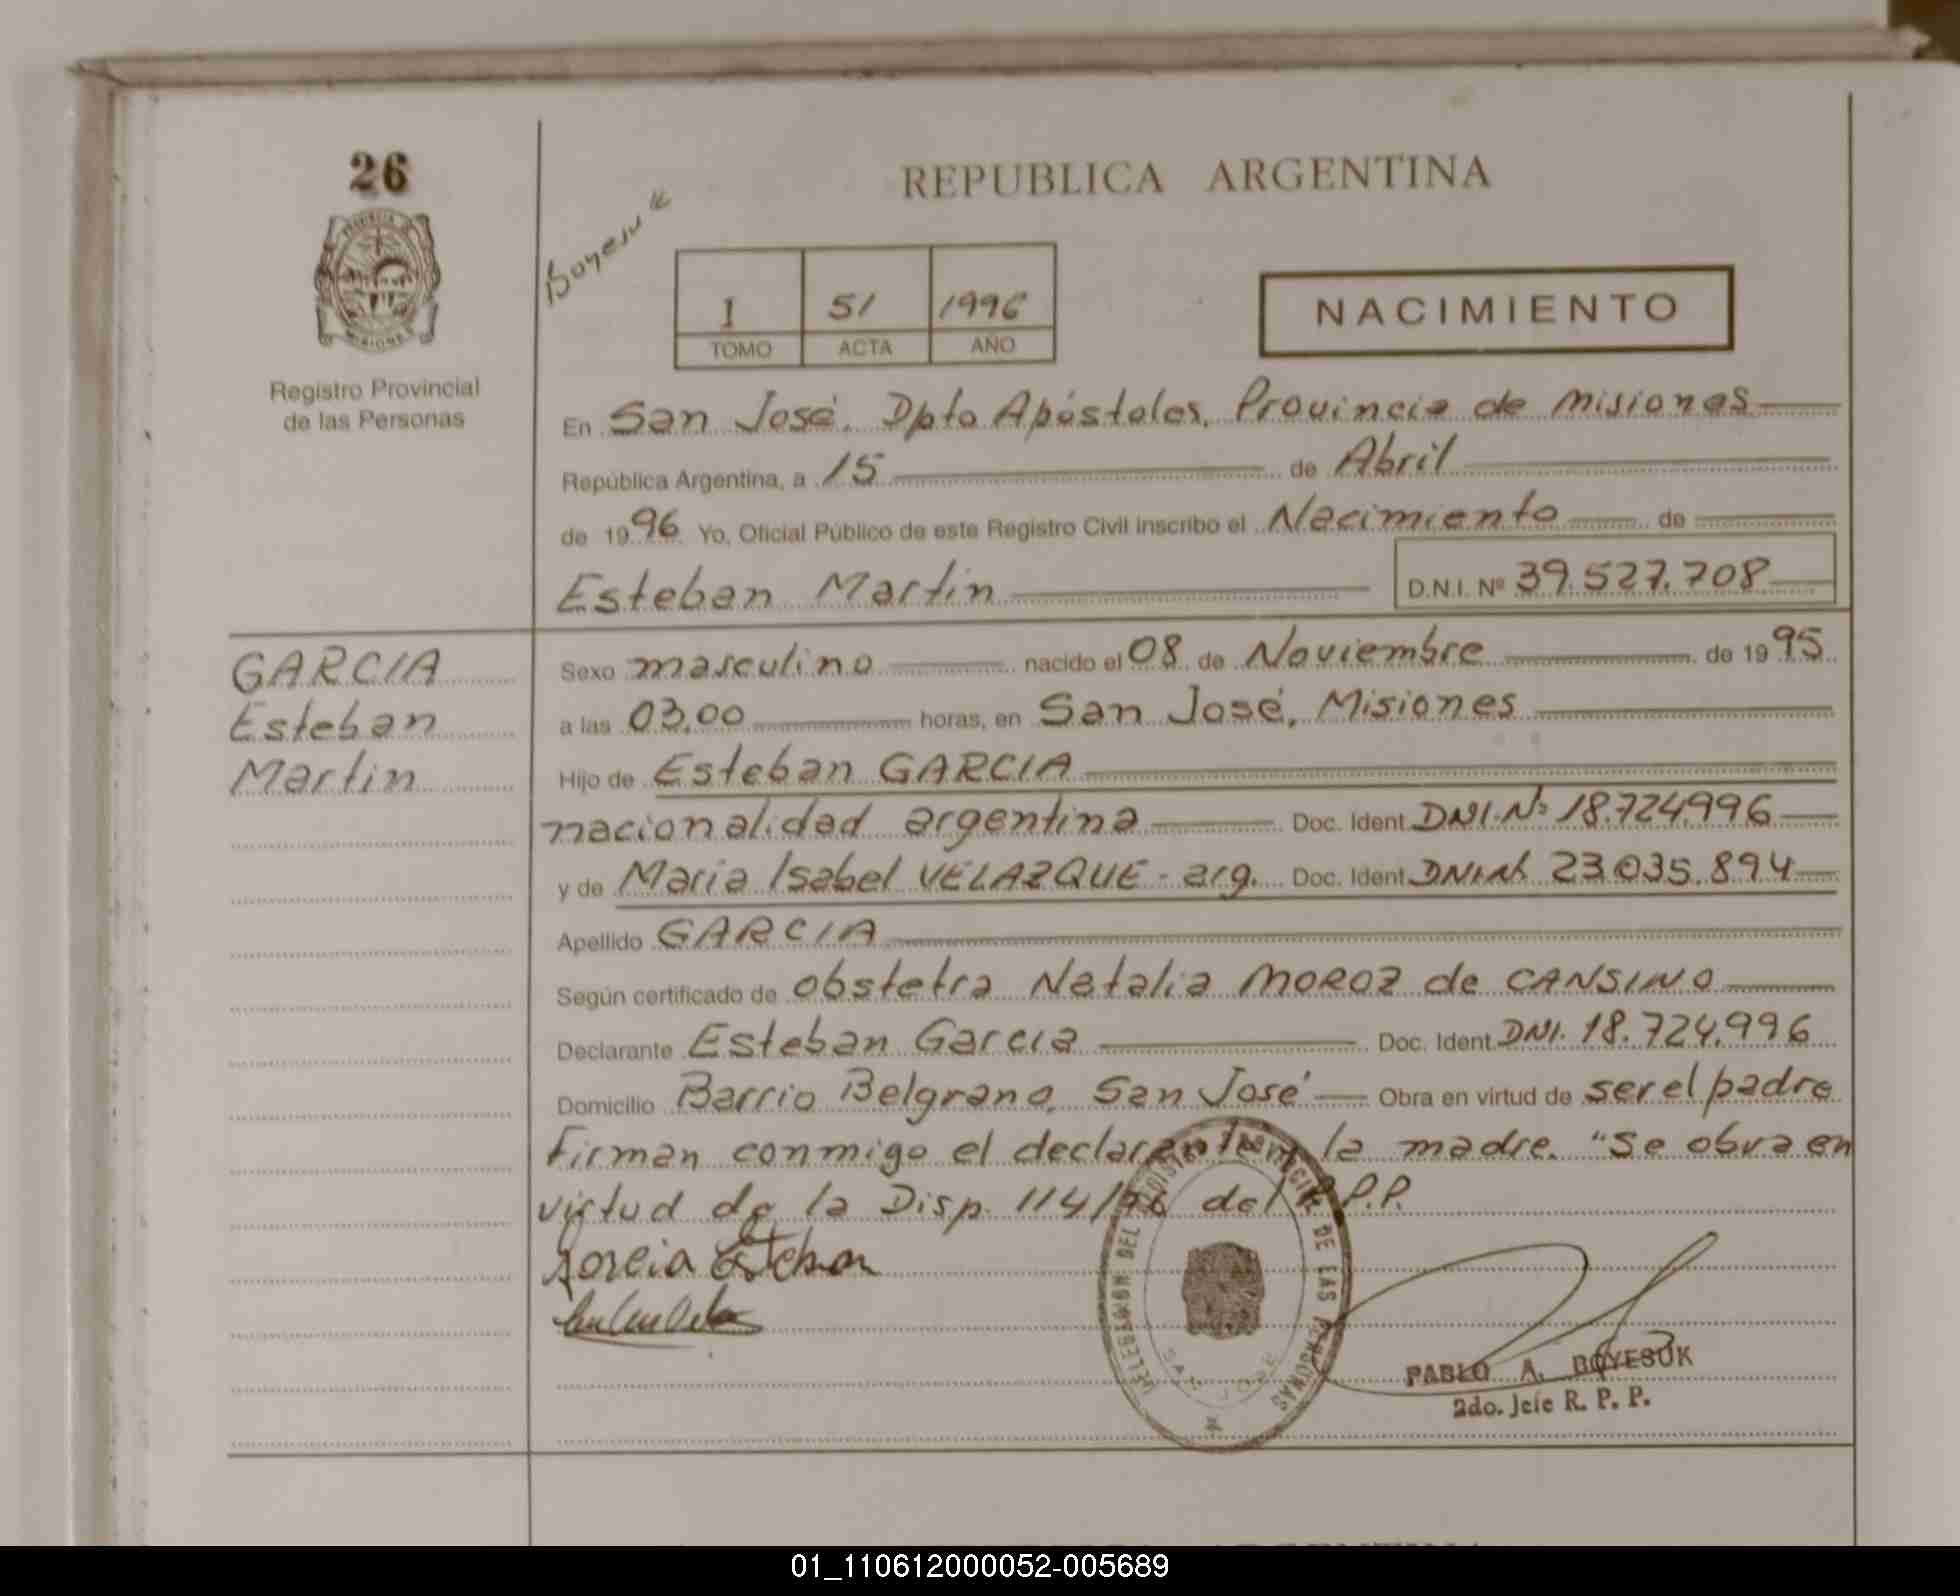 26
REPUBLICA ARGENTINA
Boyesuk
I 51 1996
TOMO ACTA AÑO
NACIMIENTO
Registro Provincial
de las Personas
En San José, Dpto Apóstoles, Provincia de Misiones
República Argentina, a 15 de Abril
de 1996 Yo, Oficial Público de este Registro Civil inscribo el Nacimiento de
Esteban Martin D.N.I. Nº 39.527.708
GARCIA
Esteban
Martin
Sexo masculino nacido el 08 de Noviembre de 1995
a las 03,00 horas, en San José, Misiones
Hijo de Esteban GARCIA
nacionalidad argentina Doc. Ident. DNI.Nº 18.724.996
y de Maria Isabel VELAZQUE - arg. Doc. Ident. DNI.Nº 23.035.894
Apellido GARCIA
Según certificado de obstetra Natalia MOROZ de CANSINO
Declarante Esteban Garcia Doc. Ident. DNI. 18.724.996
Domicilio Barrio Belgrano, San José Obra en virtud de ser el padre
Firman conmigo el declarante y la madre. "Se obra en
virtud de la Disp. 114/96 del R.P.P.
Garcia Esteban
DELEGACION DEL REGISTRO PROVINCIAL DE LAS PERSONAS
SAN JOSE
PABLO A. BOYESUK
2do. Jefe R. P. P.
01_110612000052-005689